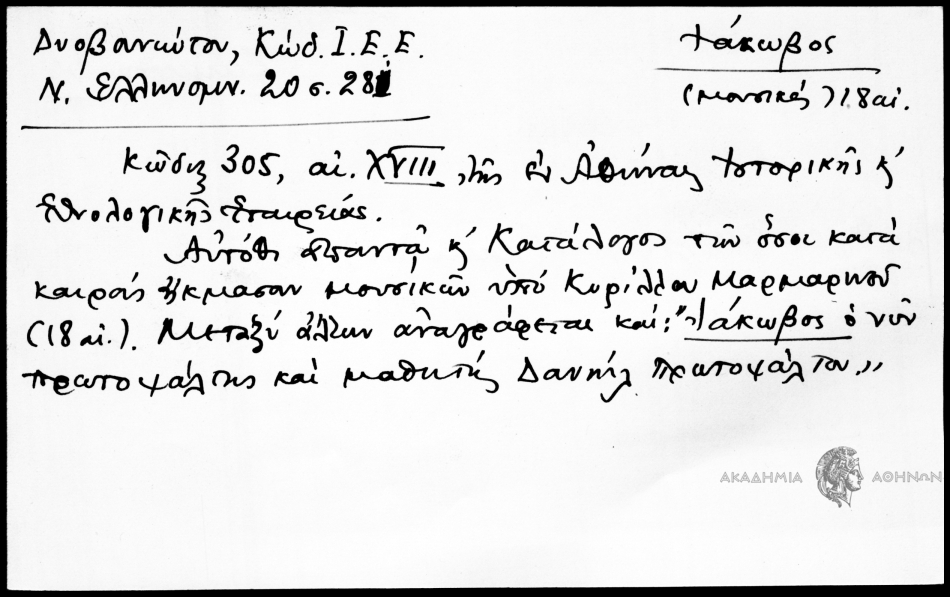 Δυοβουνιώτου, Κώδ. Ι. Ε. Ε.
Ν. Ἑλληνομν. 20 σ. 281
Ἰάκωβος
(μουσικός) 18 αἰ.
Κῶδιξ 305, αἰ. XVIII, τῆς ἐν Ἀθήναις Ἱστορικῆς κ'
Ἐθνολογικῆς Ἑταιρείας.
Αὐτόθι ἀπαντᾷ κ' Κατάλογος τῶν ὅσοι κατὰ
καιροὺς ἤκμασαν μουσικῶν ὑπὸ Κυρίλλου Μαρμαρηνοῦ
(18 αἰ.). Μεταξὺ ἄλλων ἀναγράφεται καί: "Ἰάκωβος ὁ νῦν
πρωτοψάλτης καὶ μαθητὴς Δανιὴλ πρωτοψάλτου,,
ΑΚΑΔΗΜΙΑ ΑΘΗΝΩΝ